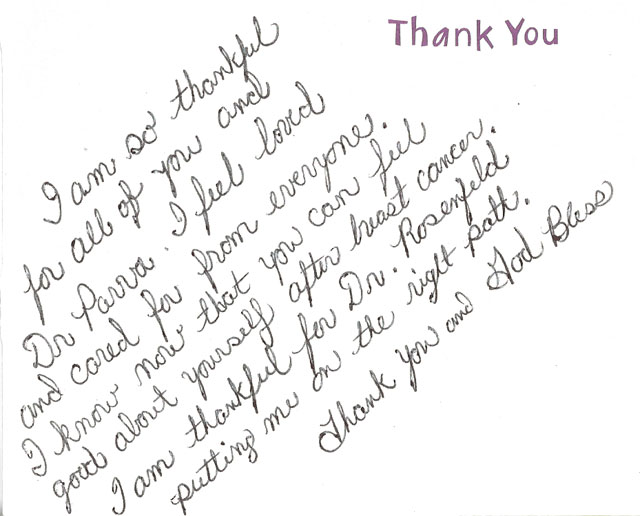 Thank You
I am so thankful
for all of you and
Dr Parva. I feel loved
and cared for from everyone.
I know now that you can feel
good about yourself after breast cancer.
I am thankful for Dr. Rosenfeld
putting me on the right path.
Thank you and God Bless